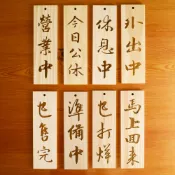 營業中
今日公休
休息中
外出中
已售完
準備中
已打烊
馬上回來